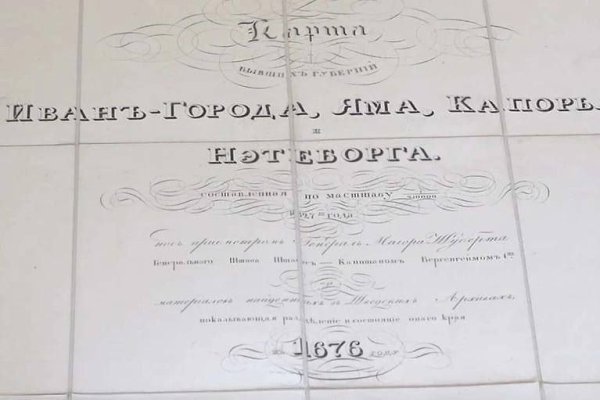 Карта
БЫВШИХЪ ГУБЕРНІЙ
ИВАНЪ-ГОРОДА, ЯМА, КАПОРЬ
и
НЭТЕБОРГА.
составленная по масштабу
1827 года
подъ присмотромъ Генералъ-Маіора Шуберта
Генеральнаго Штаба Штабсъ-Капитаномъ Бергенгеймомъ 1ᵐъ
изъ
матеріаловъ найденныхъ въ Шведскихъ Архивахъ,
показывающая раздѣленіе и состояніе онаго края
въ 1676 году